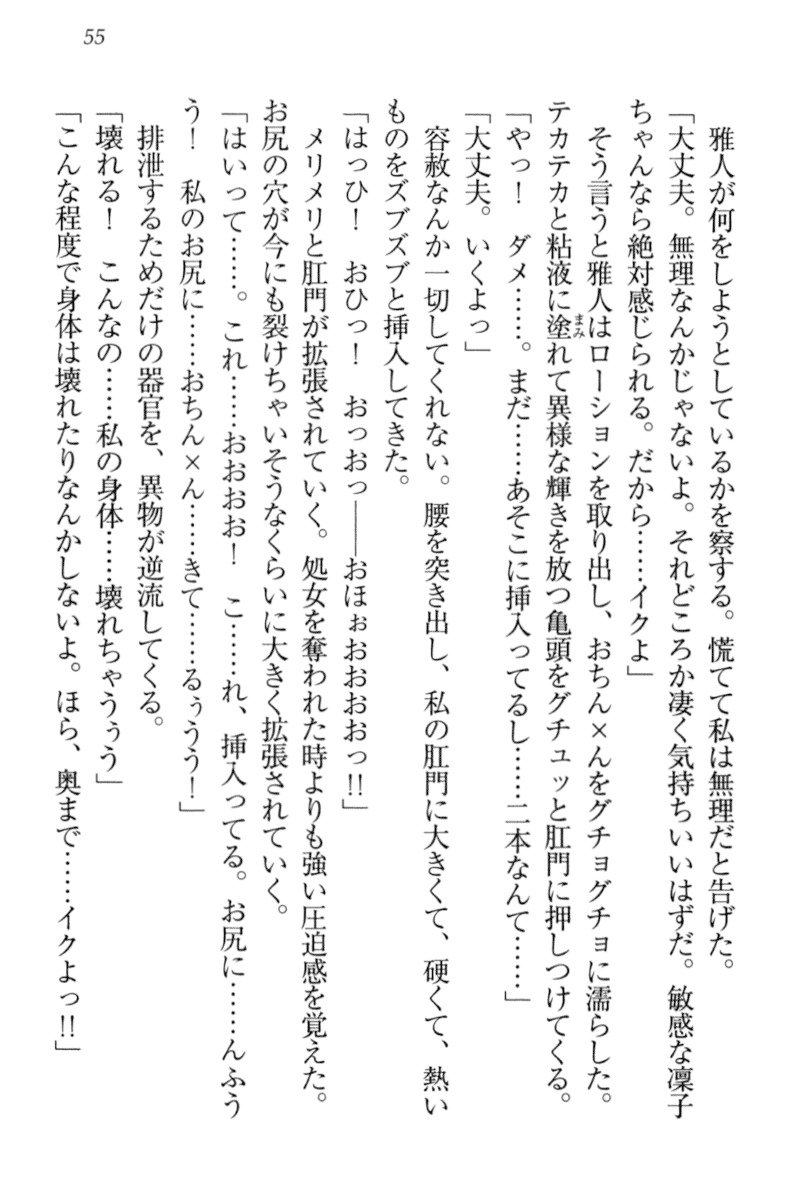 55
雅人が何をしようとしているかを察する。慌てて私は無理だと告げた。
「大丈夫。無理なんかじゃないよ。それどころか凄く気持ちいいはずだ。敏感な凜子
ちゃんなら絶対感じられる。だから……イクよ」
そう言うと雅人はローションを取り出し、おちん×んをグチョグチョに濡らした。
テカテカと粘液に塗れて異様な輝きを放つ亀頭をグチュッと肛門に押しつけてくる。
まみ
「やっ！　ダメ……。まだ……あそこに挿入ってるし……二本なんて……」
「大丈夫。いくよっ」
容赦なんか一切してくれない。腰を突き出し、私の肛門に大きくて、硬くて、熱い
ものをズブズブと挿入してきた。
「はっひ！　おひっ！　おっおっ――おほぉおおおおっ!!」
メリメリと肛門が拡張されていく。処女を奪われた時よりも強い圧迫感を覚えた。
お尻の穴が今にも裂けちゃいそうなくらいに大きく拡張されていく。
「はいって……。これ……おおおお！　こ……れ、挿入ってる。お尻に……んふう
う！　私のお尻に……おちん×ん……きて……るぅうう！」
排泄するためだけの器官を、異物が逆流してくる。
「壊れる！　こんなの……私の身体……壊れちゃうぅう」
「こんな程度で身体は壊れたりなんかしないよ。ほら、奥まで……イクよっ!!」